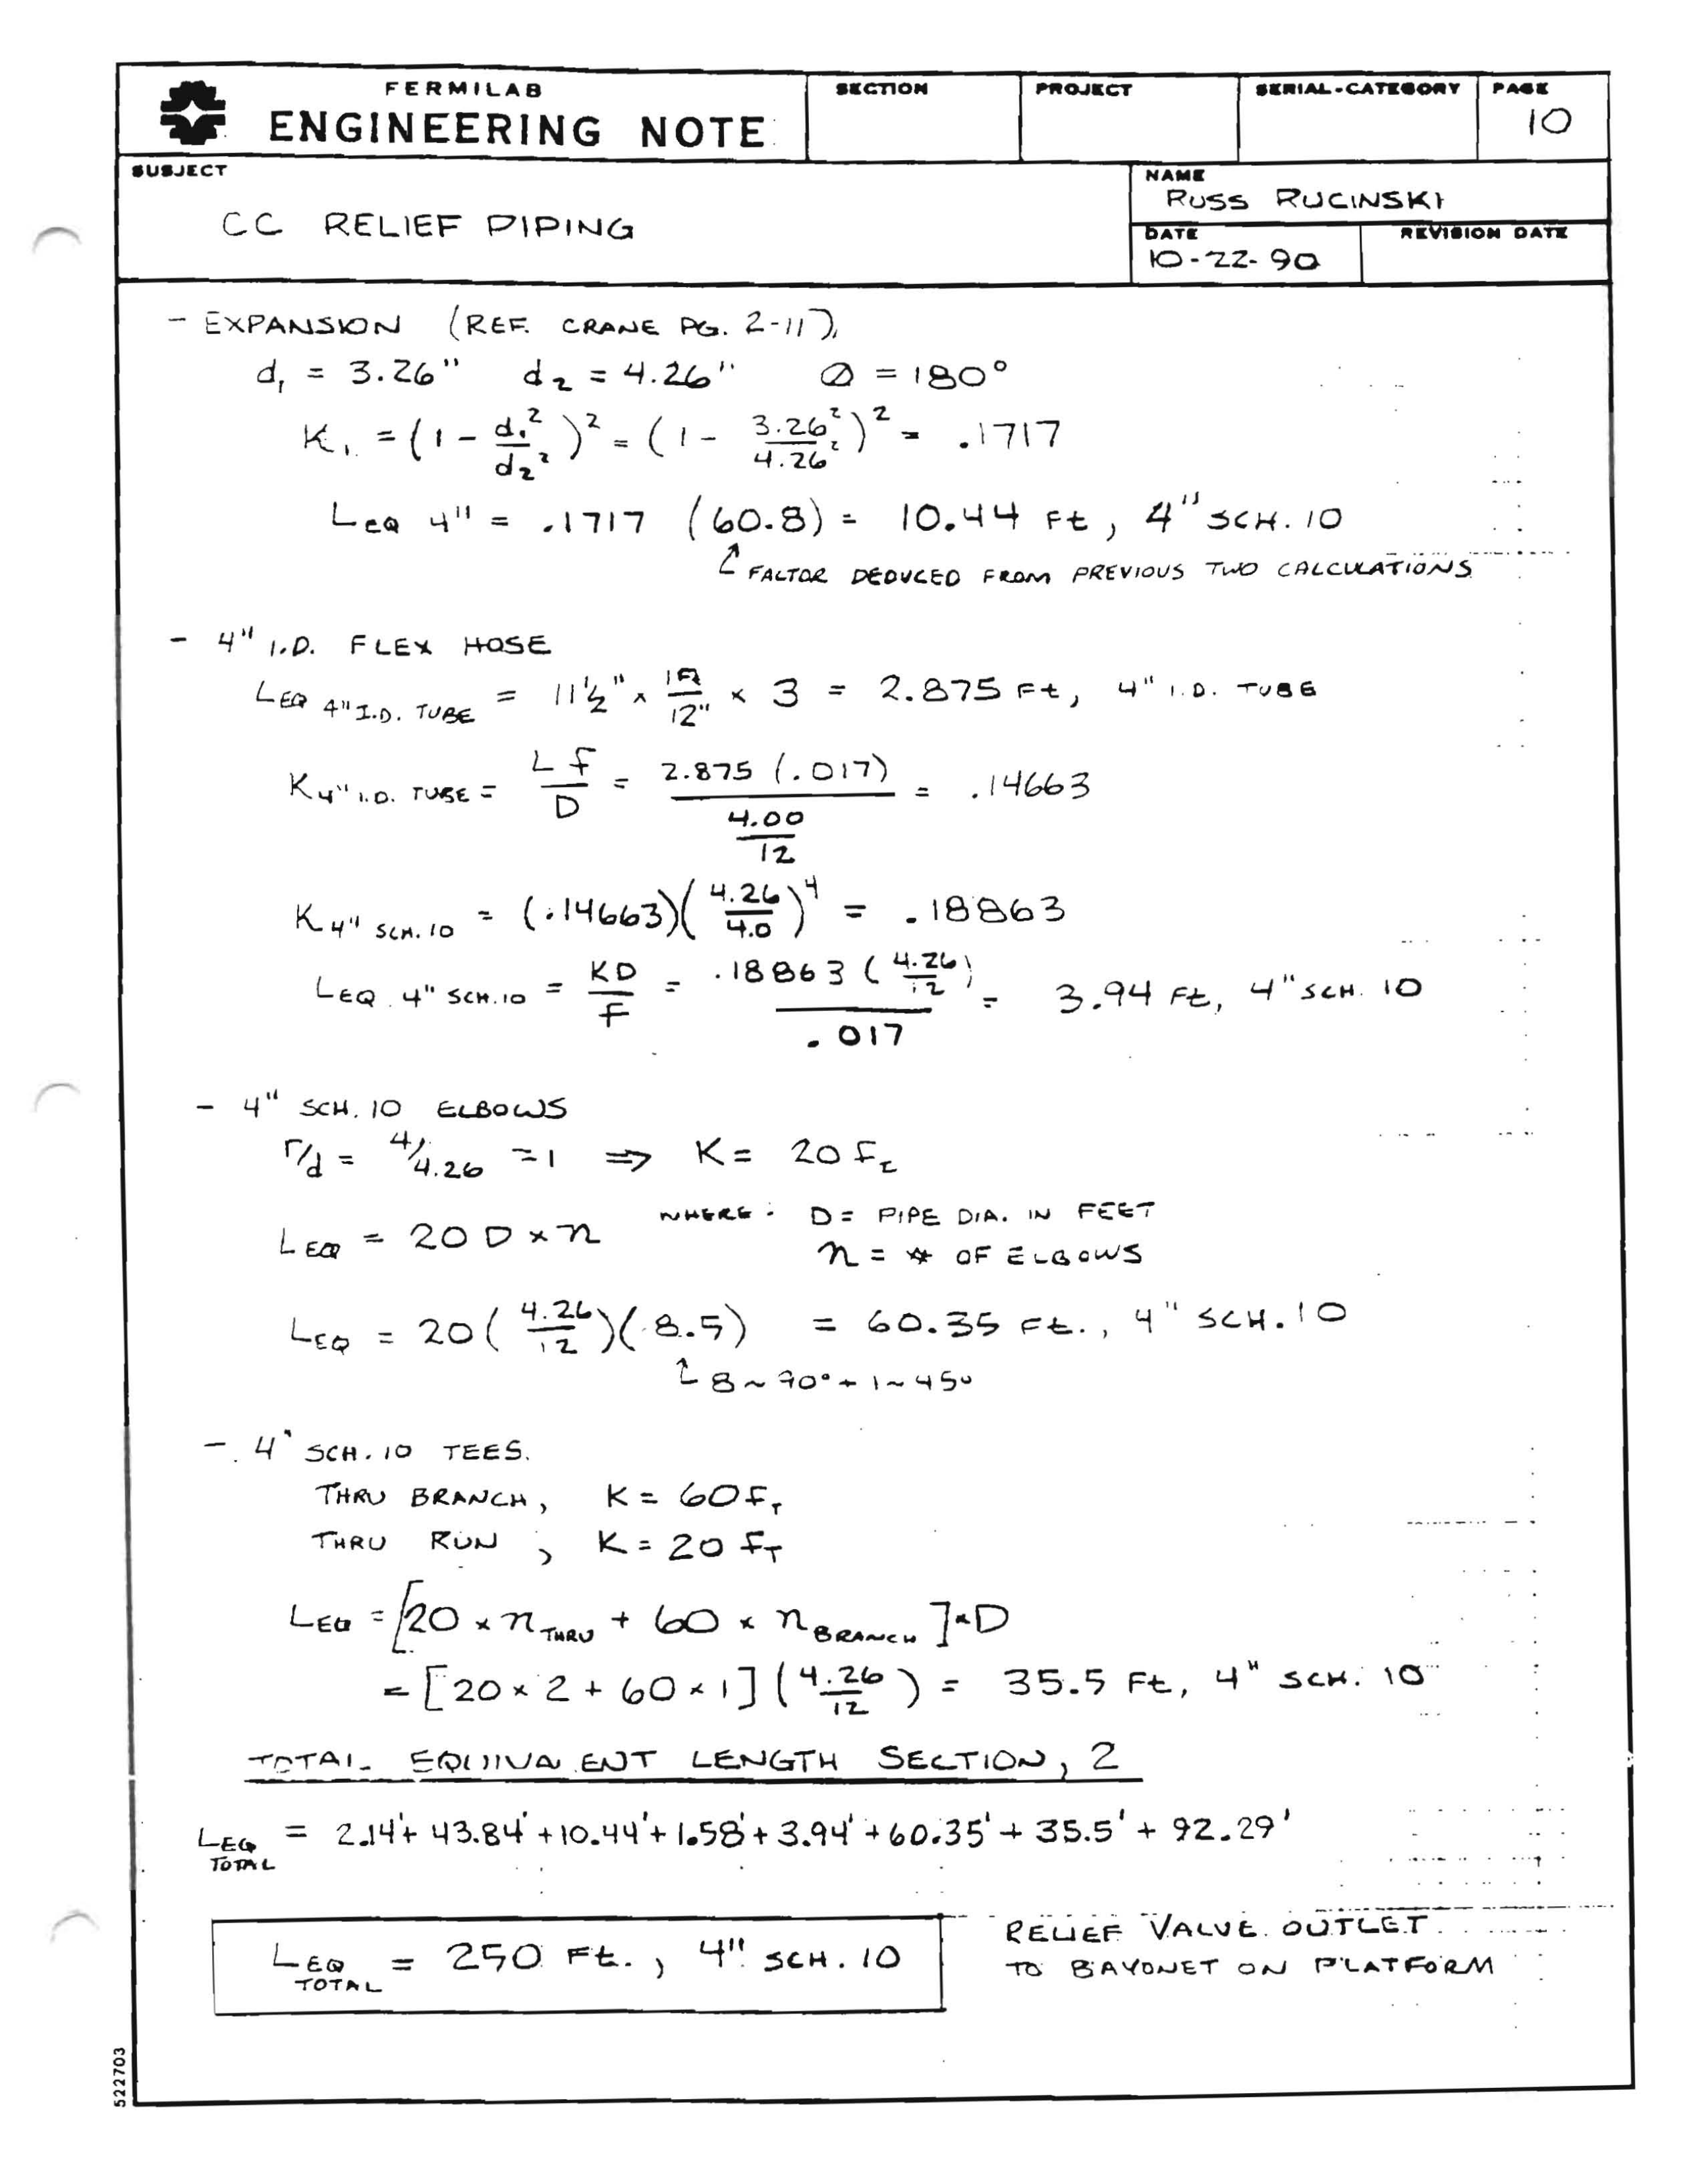 FERMILAB
ENGINEERING NOTE
SECTION
PROJECT
SERIAL-CATEGORY
PAGE
10
SUBJECT
CC RELIEF PIPING
NAME
RUSS RUCINSKI
DATE
10-22-90
REVISION DATE
- EXPANSION (REF. CRANE PG. 2-11)
d₁ = 3.26" d₂ = 4.26" Ø = 180°
K₁ = (1 - d₁²/d₂²)² = (1 - 3.26²/4.26²)² = .1717
LEQ 4" = .1717 (60.8) = 10.44 Ft, 4" SCH. 10
FACTOR DEDUCED FROM PREVIOUS TWO CALCULATIONS
- 4" I.D. FLEX HOSE
LEQ 4" I.D. TUBE = 11½" × 1Ft/12" × 3 = 2.875 Ft, 4" I.D. TUBE
K4" I.D. TUBE = L f/D = 2.875 (.017)/(4.00/12) = .14663
K4" SCH. 10 = (.14663)(4.26/4.0)⁴ = .18863
LEQ. 4" SCH. 10 = KD/F = .18863 (4.26/12)/.017 = 3.94 Ft, 4" SCH. 10
- 4" SCH. 10 ELBOWS
r/d = 4/4.26 = 1 ⇒ K = 20 fT
LEQ = 20 D × n WHERE: D = PIPE DIA. IN FEET
n = # OF ELBOWS
LEQ = 20 (4.26/12)(8.5) = 60.35 Ft., 4" SCH. 10
8 ~ 90° + 1 ~ 45°
- 4" SCH. 10 TEES.
THRU BRANCH, K = 60 fT
THRU RUN, K = 20 fT
LEQ = [20 × nTHRU + 60 × nBRANCH] × D
= [20 × 2 + 60 × 1] (4.26/12) = 35.5 Ft, 4" SCH. 10
TOTAL EQUIVALENT LENGTH SECTION, 2
LEQ TOTAL = 2.14' + 43.84' + 10.44' + 1.58' + 3.94' + 60.35' + 35.5' + 92.29'
LEQ TOTAL = 250 Ft., 4" SCH. 10
RELIEF VALVE OUTLET
TO BAYONET ON PLATFORM
522703